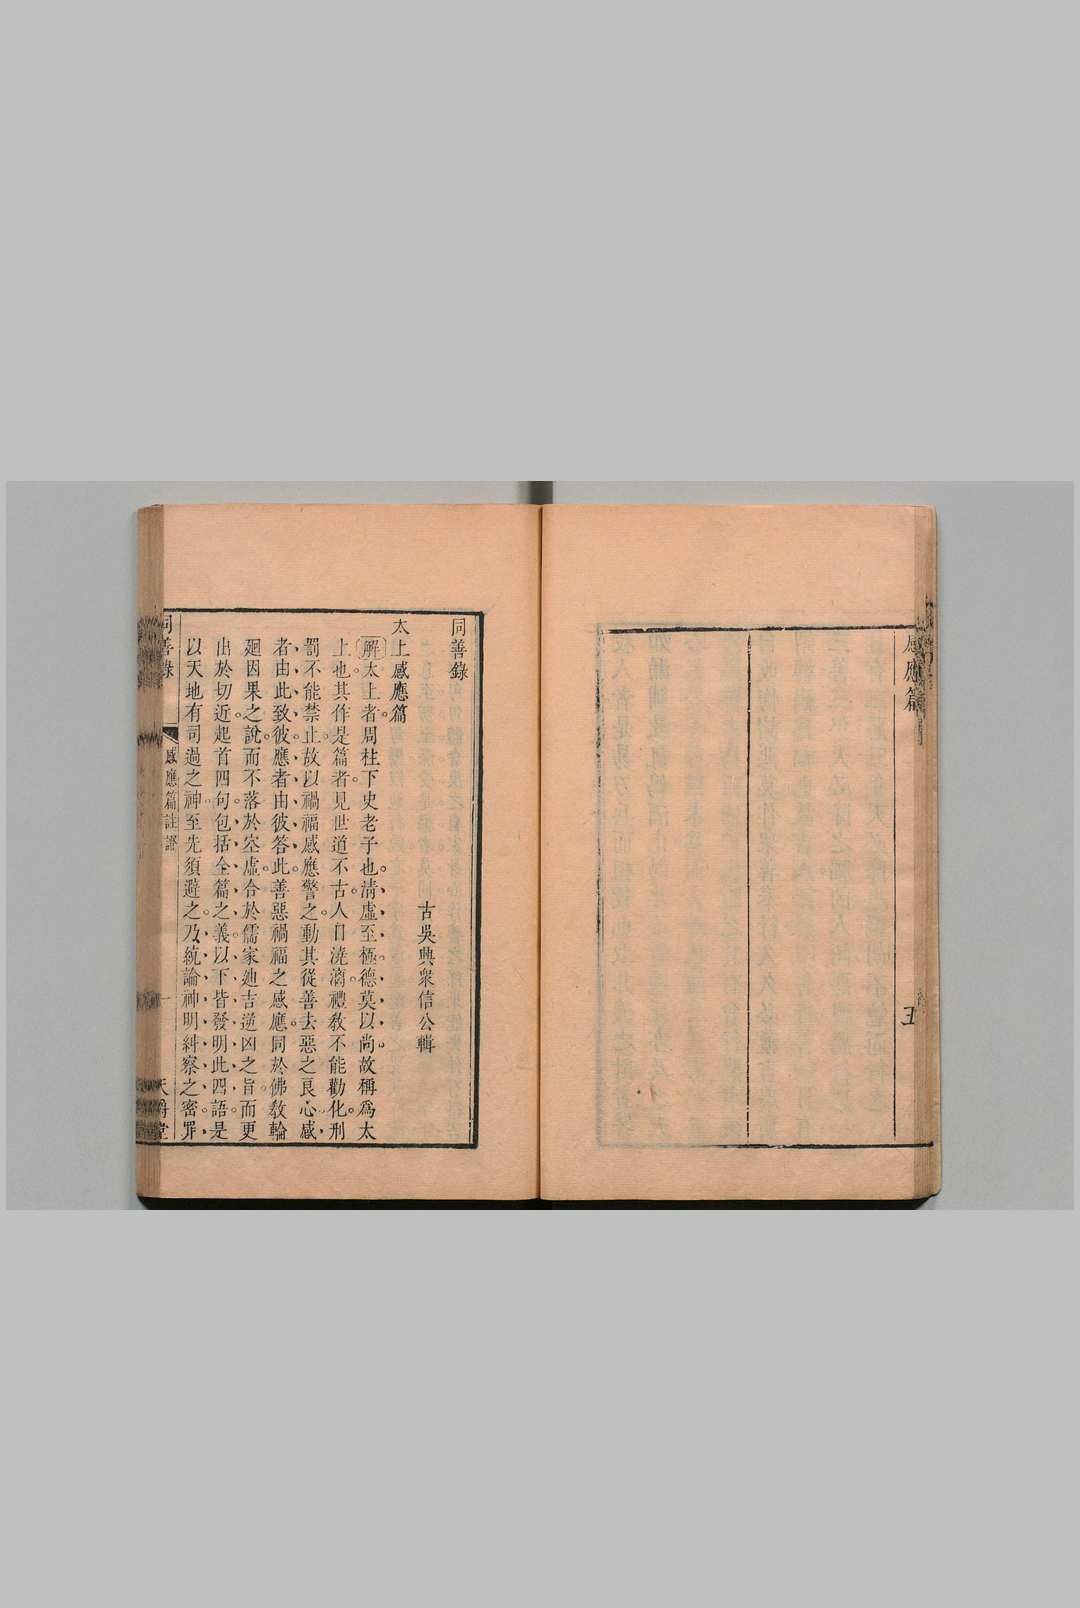 感應篇
五
同善錄
古吳興衆信公輯
太上感應篇
解太上者周柱下史老子也淸虛至極德莫以尚故稱爲太
上也其作是篇者見世道不古人日澆漓禮敎不能勸化刑
罰不能禁止故以禍福感應警之動其從善去惡之良心感
者由此致彼應者由彼答此善惡禍福之感應同於佛敎輪
廻因果之說而不落於空虛合於儒家廸吉逆凶之旨而更
出於切近起首四句包括全篇之義以下皆發明此四語是
以天地有司過之神至先須避之乃統論神明糾察之密罪
同善錄
感應篇註證
一
天爵堂